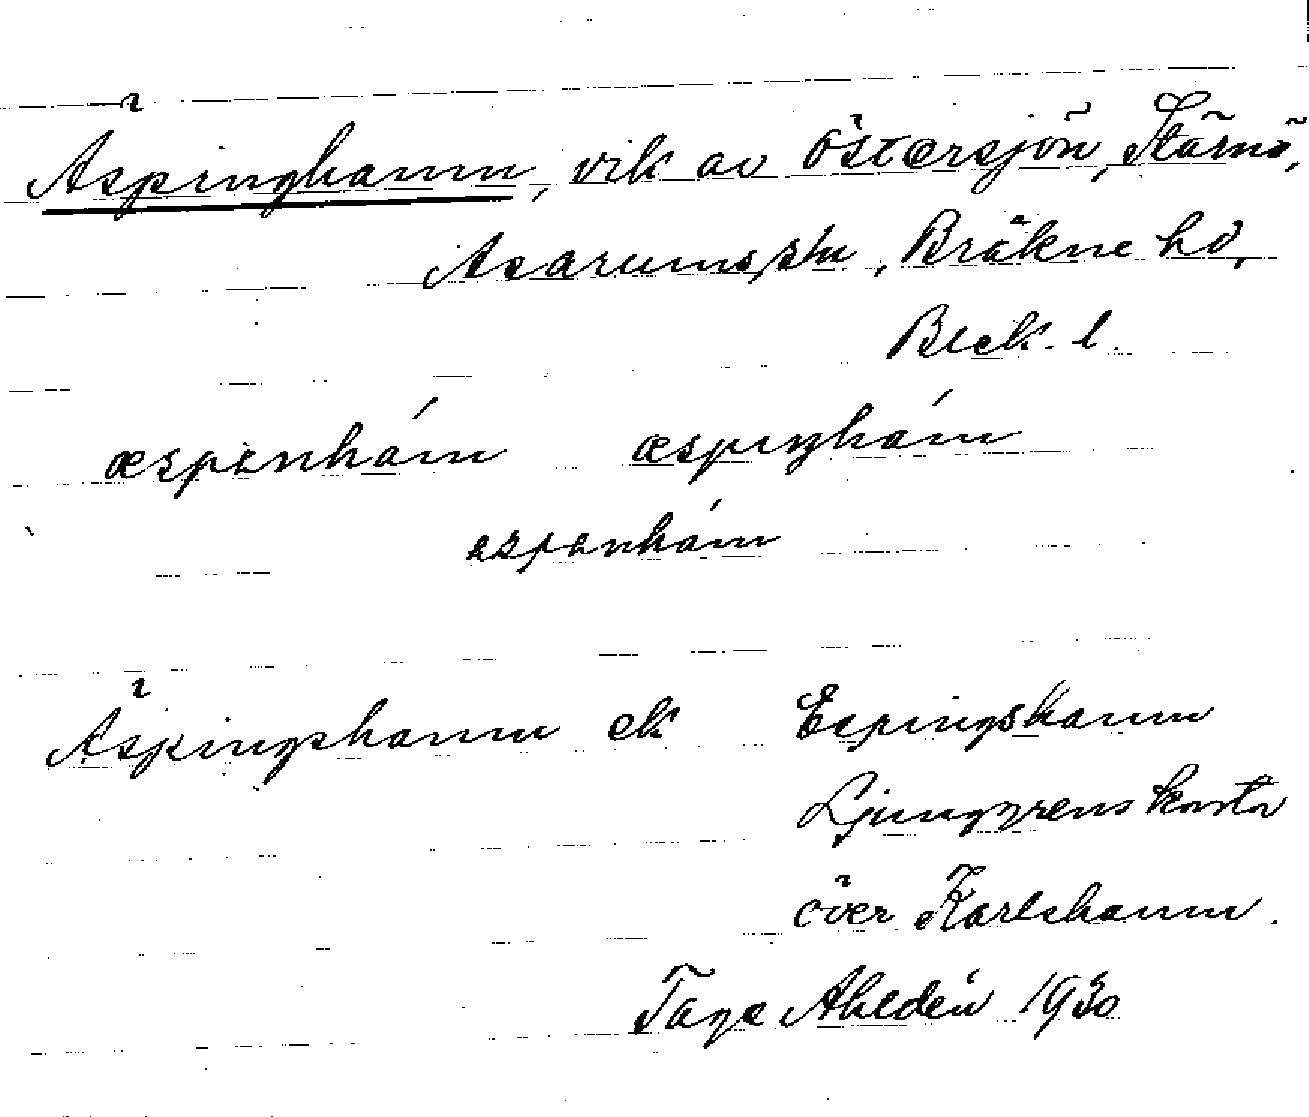 Äspinghamn, vik av Östersjön, Stärnö,
Asarums sn, Bräkne hd,
Blek. l.
æspenhámn æspıŋhámn
espenhámn
Äspingshamn ek Espingshamn
Ljunggrens karta
över Karlshamn.
Tage Ahldén 1930